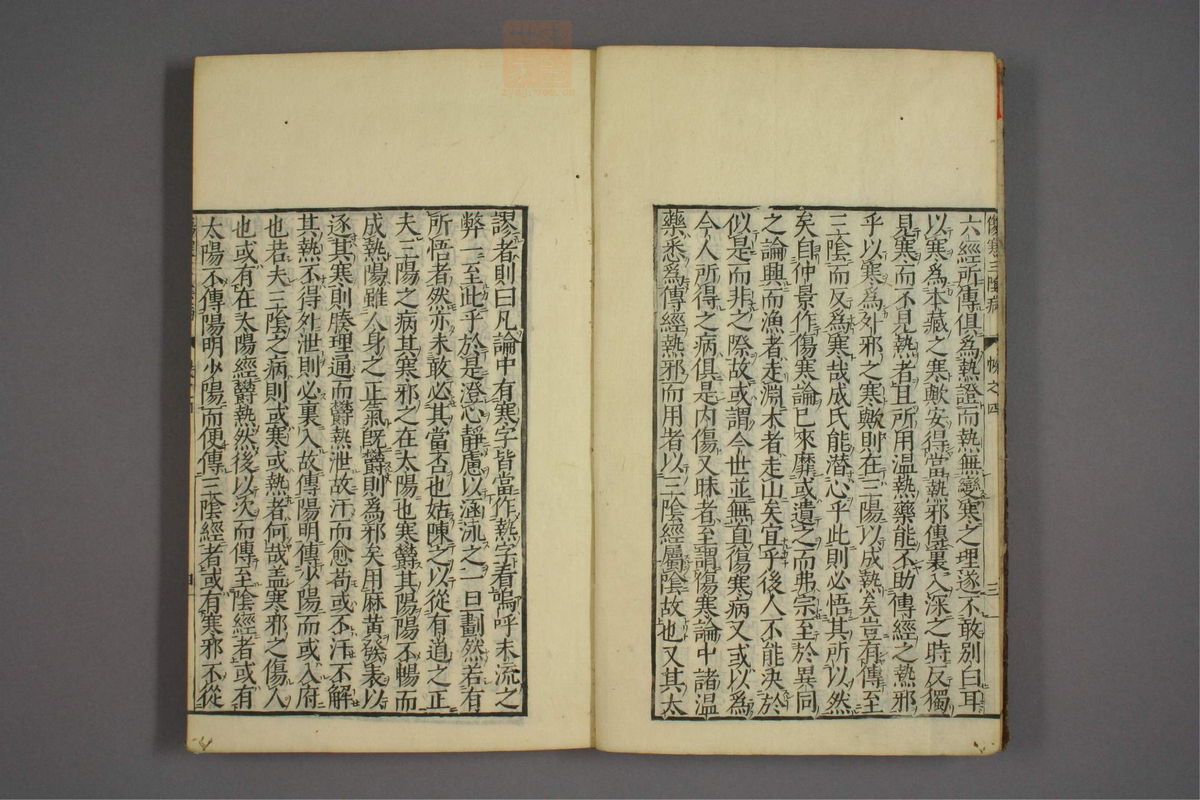 傷寒三陰病
帙之四
三
六經所傳俱為熱證而熱無變寒之理遂不敢別白耳
以寒爲本藏之寒歟安得當熱邪傳裏入深之時反獨
見寒而不見熱者且所用温熱藥能不助傳經之熱邪
乎以寒爲外邪之寒歟則在三陽以成熱矣豈有傳至
三陰而又爲寒哉成氏能潜心乎此則必悟其所以然
矣自仲景作傷寒論已來靡或遺之而弗宗至於異同
之論興而漁者走淵木者走山矣宜乎後人不能決於
似是而非之際故或謂今世並無真傷寒病又或以爲
今人所得之病俱是内傷又昧者至謂傷寒論中諸温
藥悉爲傳經熱邪而用者以三陰經屬陰故也又其太
謬者則曰凡論中有寒字皆當作熱字看嗚呼末流之
弊一至此乎於是澄心靜慮以涵泳之一旦劃然若有
所悟者然亦未敢必其當否也姑陳之以從有道之正
夫三陽之病其寒邪之在太陽也寒欝其陽陽不暢而
成熱陽雖人身之正氣既欝則爲邪矣用麻黄發表以
逐其寒則腠理通而欝熱泄故汗而愈苟或不汗不解
其熱不得外泄則必裏入故傳陽明傳少陽而或入府
也若夫三陰之病則或寒或熱者何哉盖寒邪之傷人
也或有在太陽經欝熱然後以次而傳至陰經者或有
太陽不傳陽明少陽而便傳三陰經者或有寒邪不從